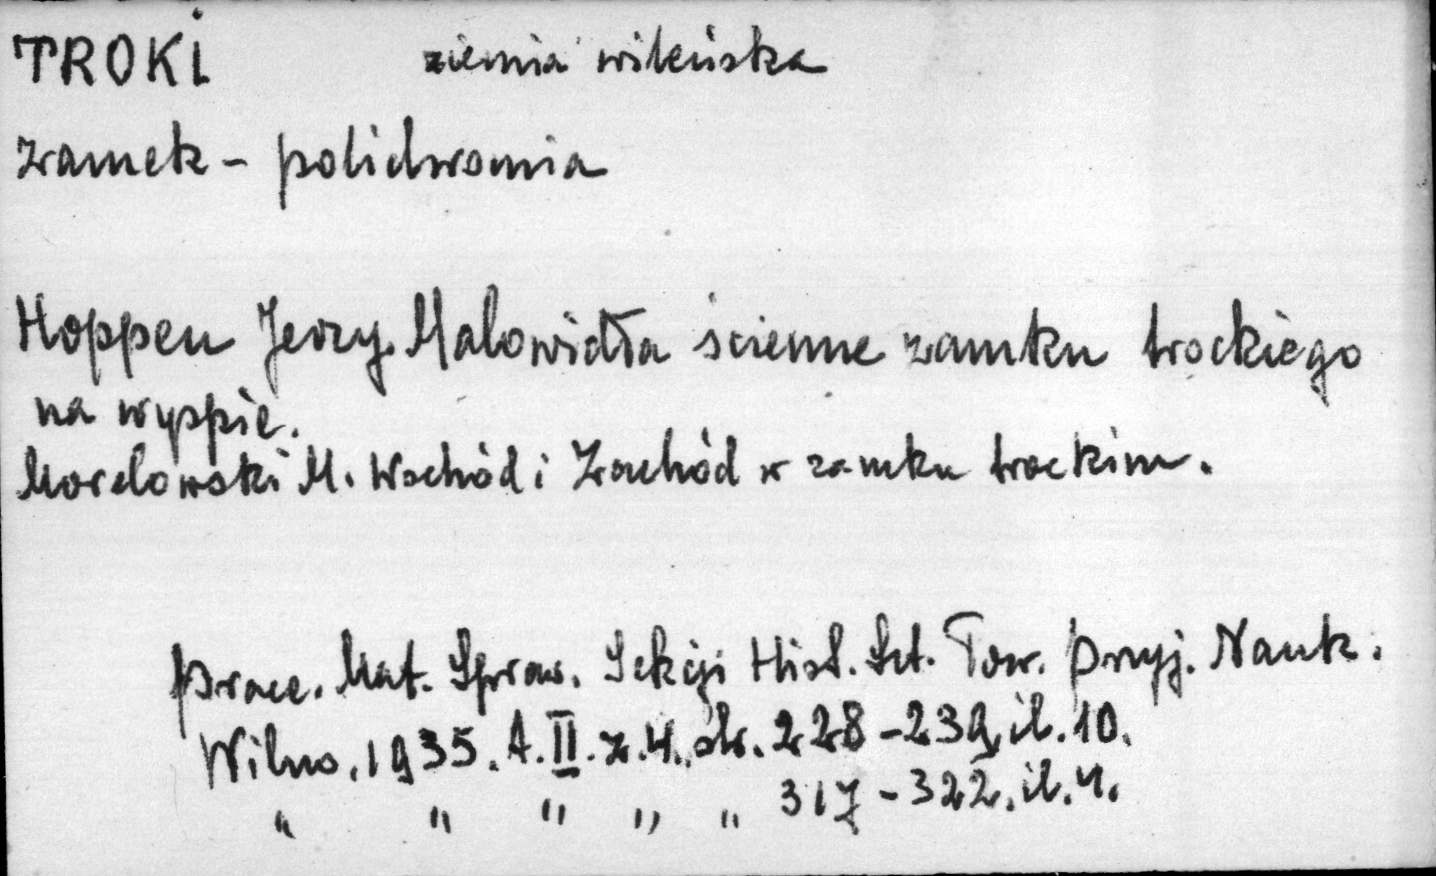 TROKI ziemia wileńska
zamek - polichromia
Hoppen Jerzy. Malowidła ścienne zamku trockiego
na wyspie.
Morelowski M. Wschód i Zachód w zamku trockim.
Prace. Mat. Spraw. Sekcji Hist. Szt. Tow. Przyj. Nauk.
Wilno. 1935. t. II. z. 4. str. 228 - 239, il. 10.
" " " " " 317 - 322. il. 4.